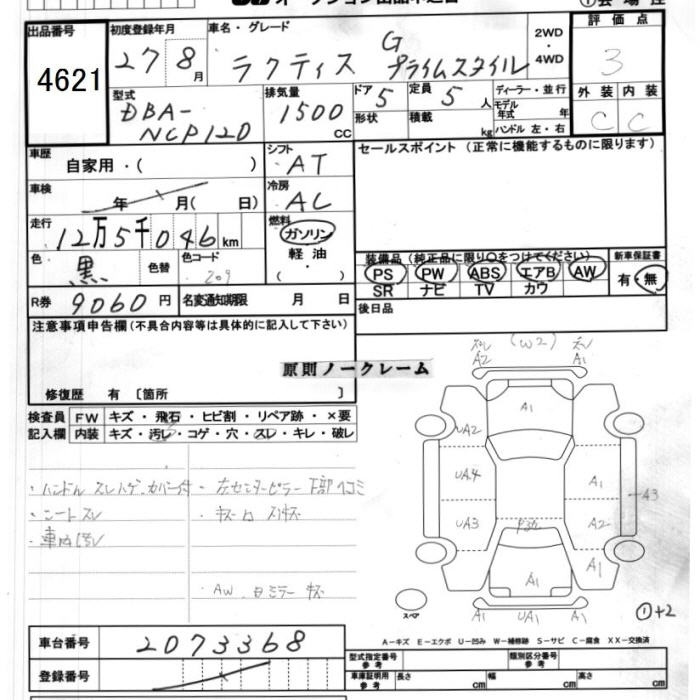 出品番号
4621
初度登録年月
27 8月
車名・グレード
ラクティス G プライムスタイル
2WD
・
4WD
評価点
3
外装 内装
C C
型式
DBA-
NCP120
排気量
1500
CC
ドア
5
定員
5 人
形状
積載
kg
ディーラー・並行
モデル
年式 年
ハンドル 左・右
車歴
自家用・( )
シフト
AT
セールスポイント (正常に機能するものに限ります)
車検
年 月( 日)
冷房
AC
走行
12万5千046km
燃料
ガソリン
軽油
( )
色
黒
色替
色コード
209
装備品(純正品に限り○をつけてください)
PS PW ABS エアB AW
SR ナビ TV カワ
新車保証書
有・無
R券 9060円
名変通知期限 月 日
後日品
注意事項申告欄(不具合内容等は具体的に記入して下さい)
原則ノークレーム
修復歴 有 〔箇所 〕
検査員
記入欄
FW キズ・飛石・ヒビ割・リペア跡・×要
内装 キズ・汚レ・コゲ・穴・スレ・キレ・破レ
・ハンドル スレハゲ カバー付
・シートスレ
・車内汚レ
・左センターピラー下部 凹コミ
AW. ミラー キズ
スレ (W2) スレ
A2 A1
A1
UA2
UA4 A1
A3
UA3 A2
A1 A1
A1 UA1 A1
スペア
①+2
車台番号 2073368
登録番号
A-キズ E-エクボ U-凹み W-補修跡 S-サビ C-腐食 XX-交換済
型式指定番号
参考
類別区分番号
参考
車庫証明用
参考
長さ cm 幅 cm 高さ cm